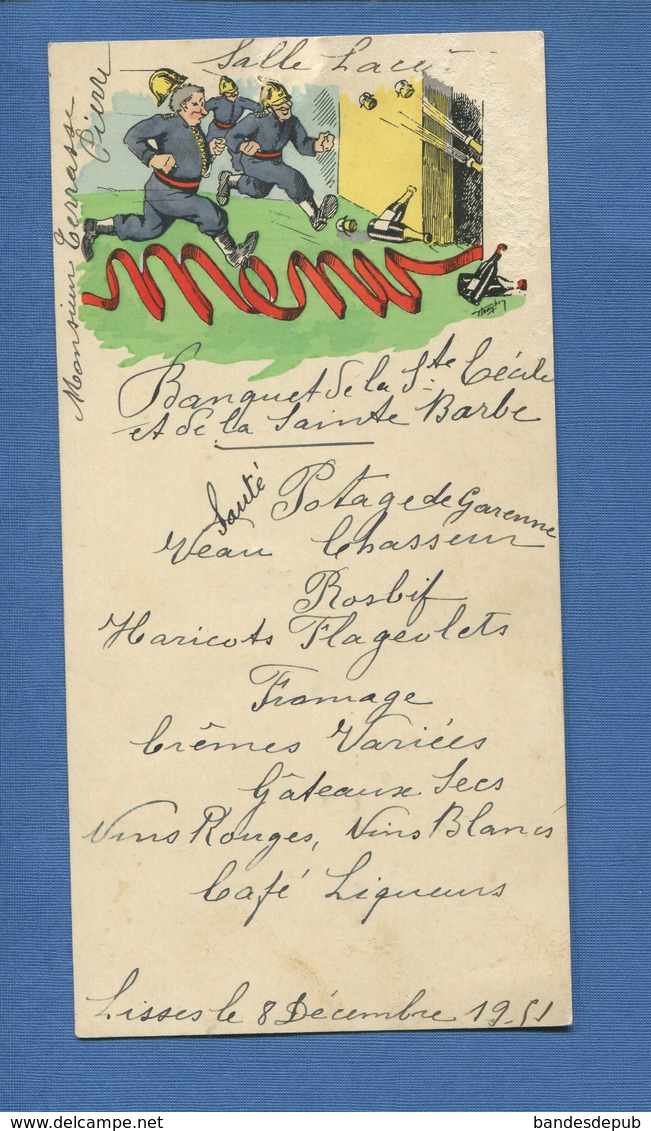 Salle
Monsieur Terrasse
Pierre
menu
Banquet de la Ste Cécile
et de la Sainte Barbe
Potage de Garenne
Sauté
Veau Chasseur
Rosbif
Haricots Flageolets
Fromage
Crêmes Variées
Gâteaux Secs
Vins Rouges, Vins Blancs
Café Liqueurs
Lisses le 8 Décembre 1951
delcampe.net
bandesdepub